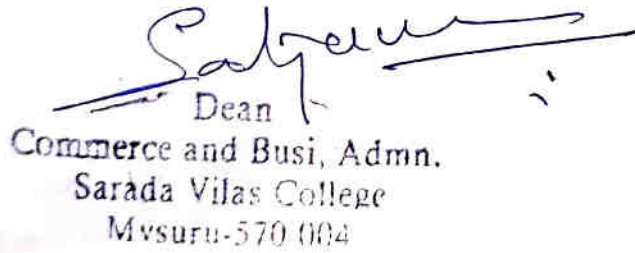 Dean
Commerce and Busi, Admn.
Sarada Vilas College
Mysuru-570 004